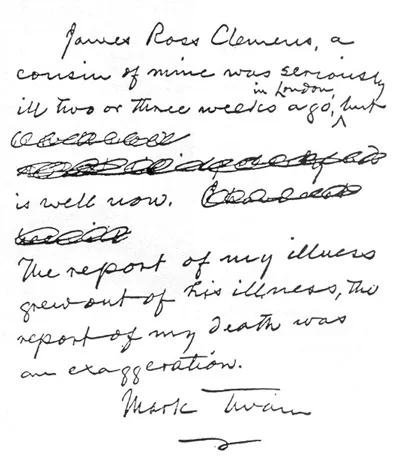 James Ross Clemens, a
cousin of mine was seriously
in London,
ill two or three weeks ago, but
is well now.
The report of my illness
grew out of his illness, the
report of my death was
an exaggeration.
Mark Twain